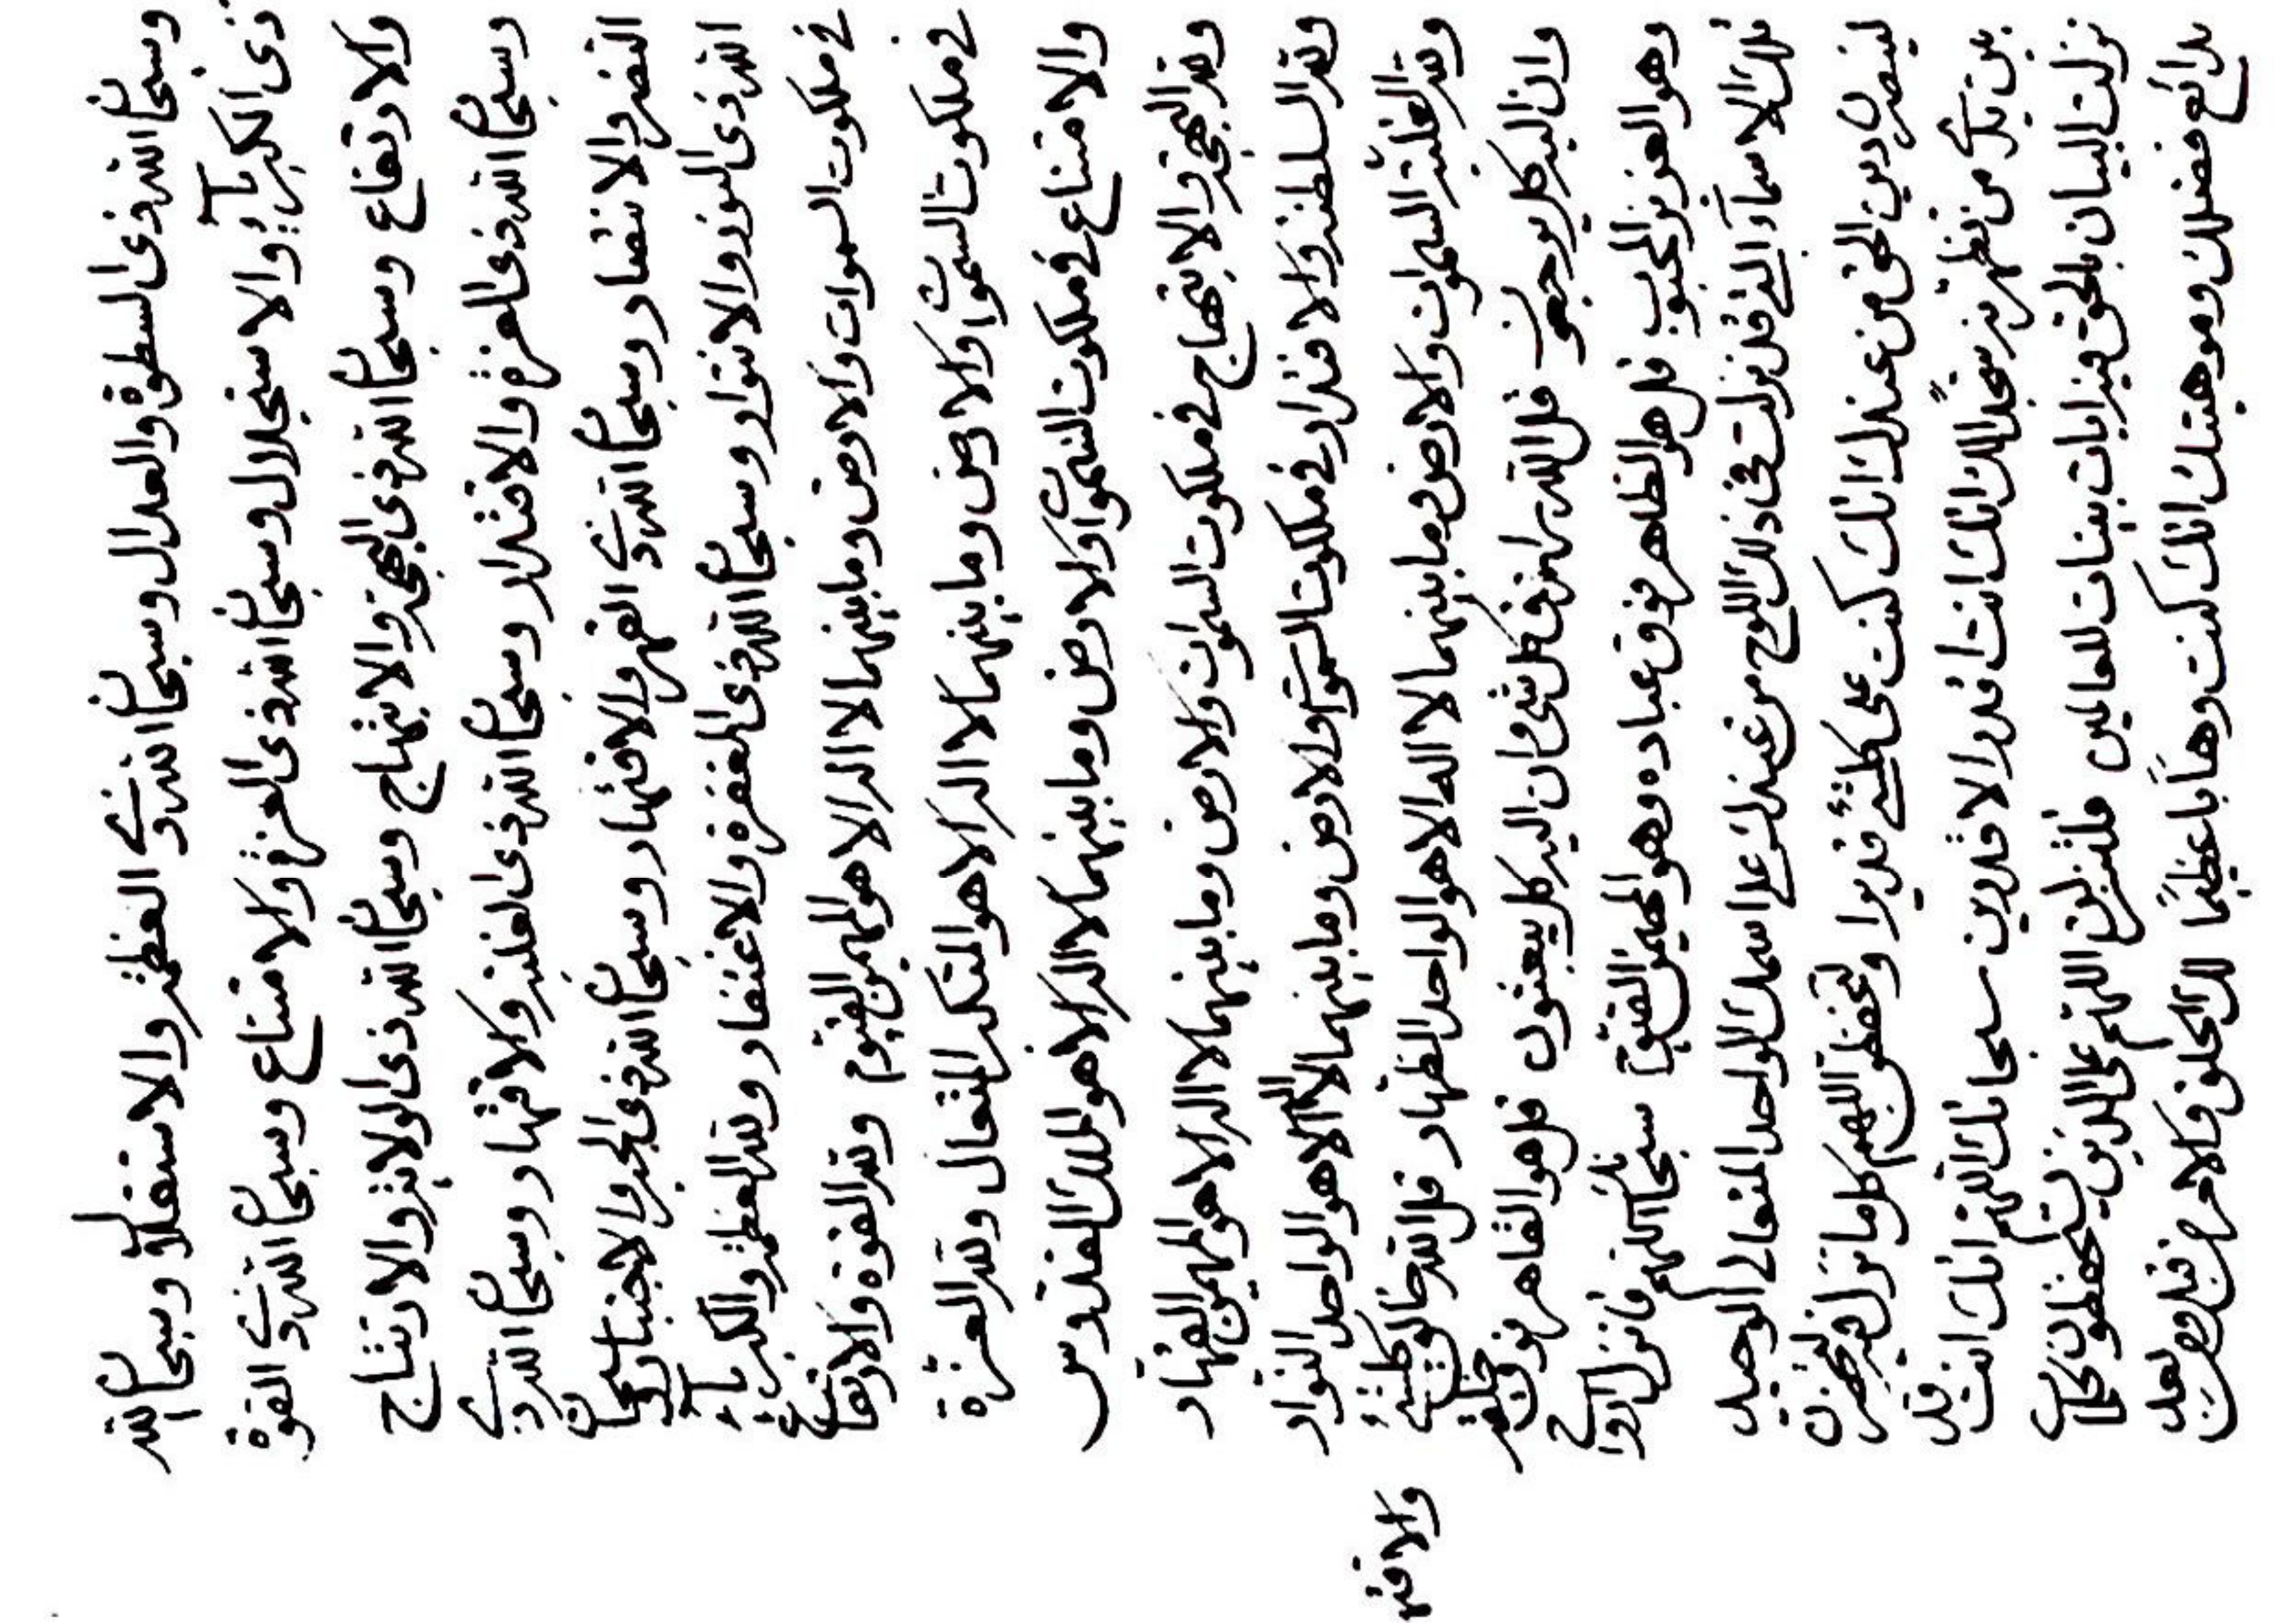 وسبحان الله ذى السطوة والعدال وسبحان الله ذي العظمة والاستقلال وسبحان الله
ذى الكبرياء والاستجلال وسبحان الله ذى العزة والامتناع وسبحان الله ذي القوة
والارتفاع وسبحان الله ذى البهجة والابتهاج وسبحان الله ذى الولاية والارتتاج
وسبحان الله ذى العزة والاقتدار وسبحان الله ذى الغلبة والاقتهار وسبحان الله ذي
وسبحان الله ذي القهر والاقتهار وسبحان الله ذى الجبر والاجتبار وسبحان
الله ذى النور والانتوار وسبحان الله ذى المغفرة والاغتفار ولله العظمة والكبرياء
في ملكوت السموات والارض وما بينهما لا اله الا هو المهيمن القيوم ولله القوة والارتفاع
في ملكوت السموات والارض وما بينهما لا اله الا هو المتكبر المتعال ولله العزة
والامتناع في ملكوت السموات والارض وما بينهما لا اله الا هو الملك القدوس
ولله البهجة والابتهاج في ملكوت السموات والارض وما بينهما لا اله الا هو المهيمن القهار
ولله السلطنة والاقتدار في ملكوت السموات والارض وما بينهما لا اله الا هو الواحد النوار
ولله الغلبة السموات والارض وما بينهما لا اله الا هو الواحد الظهار قل الله خالق كلشئ
والاقتها
وان اليه كل يرجعون قل الله رازق كل شئ وان اليه كل يبعثون قل هو القاهر فوق خلقه
وهو العزيز المحبوب قل هو الظاهر فوق عباده وهو المهيمن القيوم سبحانك اللهم فانزل
تلك الاسماء التي قد نزلت في ذلك اللوح من عندك على اسمك الواحد المتعالى الوحيد
لينصرن دين الحق من عندك انك كنت على كلشئ قديرا ولتحفظن اللهم كل ما نزل فيه لتحضرن
بين يدي من تظهرنه انك انت اقدر الاقدرين سبحانك اللهم انك انت قد
نزلت البيان بالحق فيه ايات بينات للعالمين فلتنزلن اللهم على الذين يستحفظون
بدائع فضلك وموهبتك انك كنت وهابا عظيما لك الخلق والامر من قبل ومن بعد